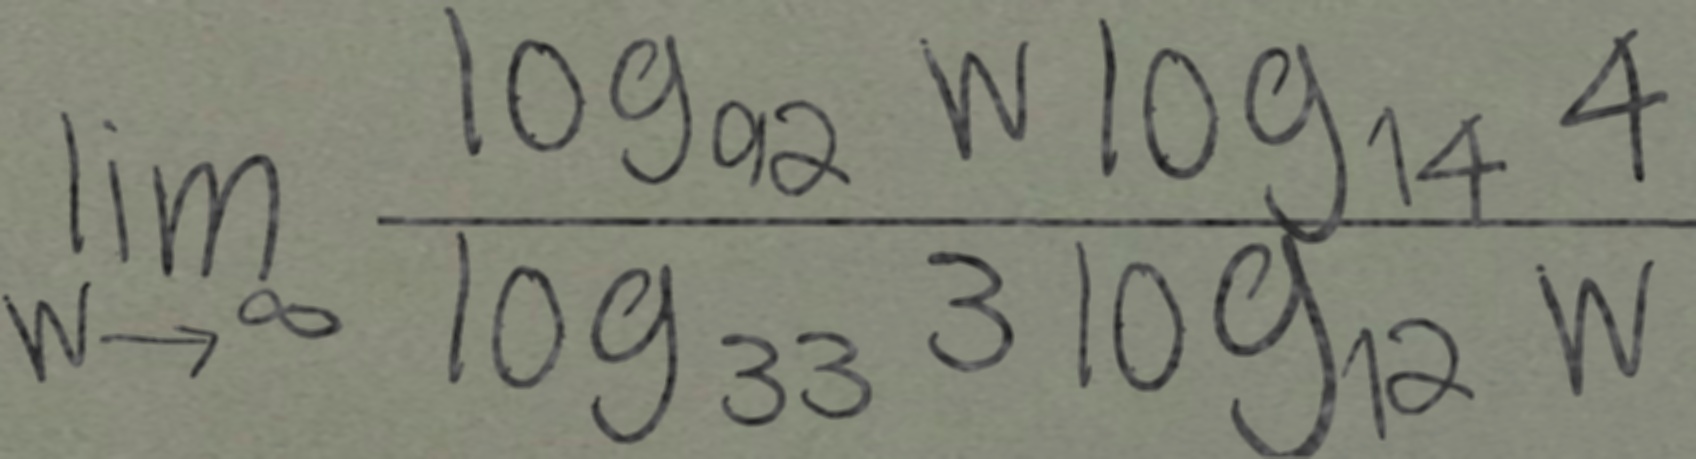 \lim_{w \to \infty} \frac{\log_{92} w \log_{14} 4}{\log_{33} 3 \log_{12} w}